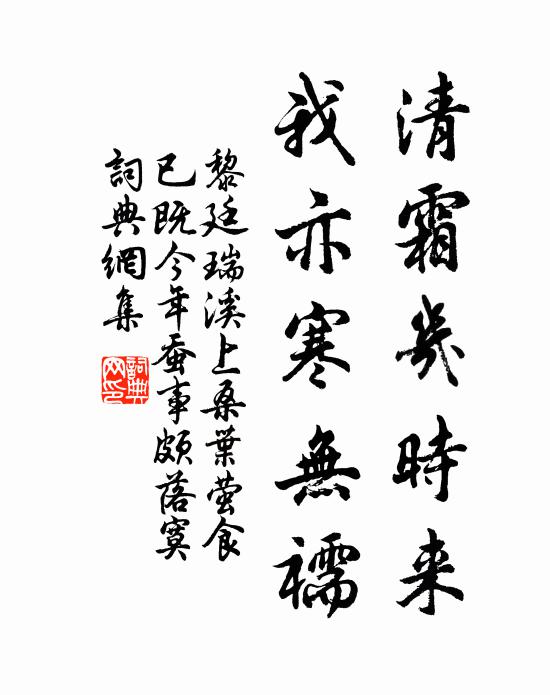 清霜幾時来
我亦寒無襦
黎廷瑞溪上桑葉蛍食
已既今年蚕事頗落寞
詞典網集
詞典
网印